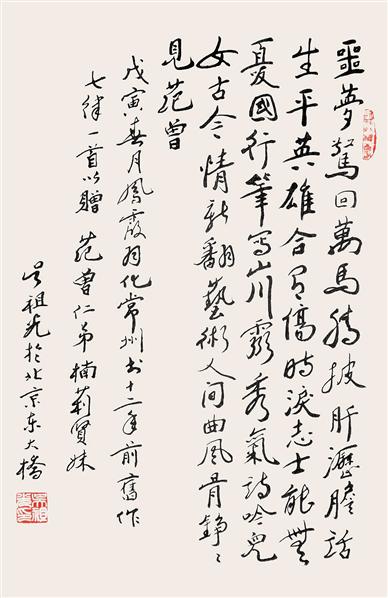 噩夢驚回萬馬騰披肝瀝膽話
生平英雄合有傷時淚志士能無
憂國行筆寫山川靈秀氣詩吟兒
女古今情新翻藝術人间曲風骨錚〻
見范曾
戊寅春月鳳霞羽化常州书十二年前舊作
七律一首以贈 范曾仁弟楠莉贤妹
吴祖光於北京东大橋